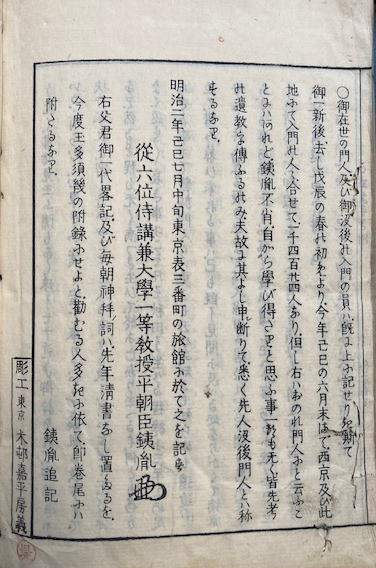 ○御在世の門人及び御沒後ル入門の員ハ既ニ上ニ記せり
御一新後去し戊辰の春ル初あより今年己巳の六月末まで西京及び此
地ニて入門ル人ハ合せて一千四百廿四人あり但し右ハおのれ門人ニと云ふこ
とニハあれど銕胤不肖自から學び得さりと思ふ事一も無く皆先考
ル遺敎を傳ふるのみ夫故ニ其よし申断りて悉く先人沒後門人とハ稱
するあり
明治二年己巳七月中旬東京表三番町の旅館ニ於て之を記す
從六位侍講兼大學一等教授平朝臣銕胤
右父君御一代畧記及び每朝神拜詞ハ先年清書あし置るを
今度玉多須幾の附録ニせよと勸むる人多ルニ依て卽卷尾ニハ
附さるあり
銕胤追記
彫工 東京 木邨嘉平房義